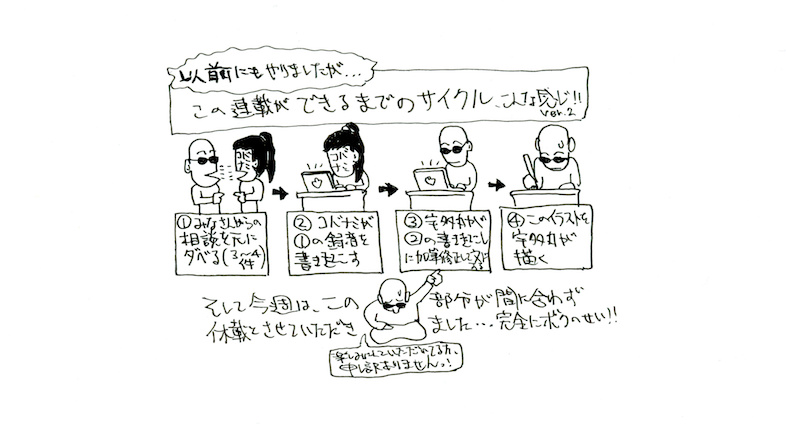 以前にもやりましたが...
この連載ができるまでのサイクル、こんな感じ!!
ver.2
コバナミ
コバナミ
①みなさんからの
相談を元に
ダベる(3〜4件)
② コバナミが
①の録音を
書き起こす
③宇多丸が
②の書き起こし
に加筆修正して文に
④このイラストを
宇多丸が
描く
そして今週は、この部分が間に合わず
休載とさせていただきました...完全にボクのせい!!
楽しみにしていただいてる方、
申し訳ありませんっ!